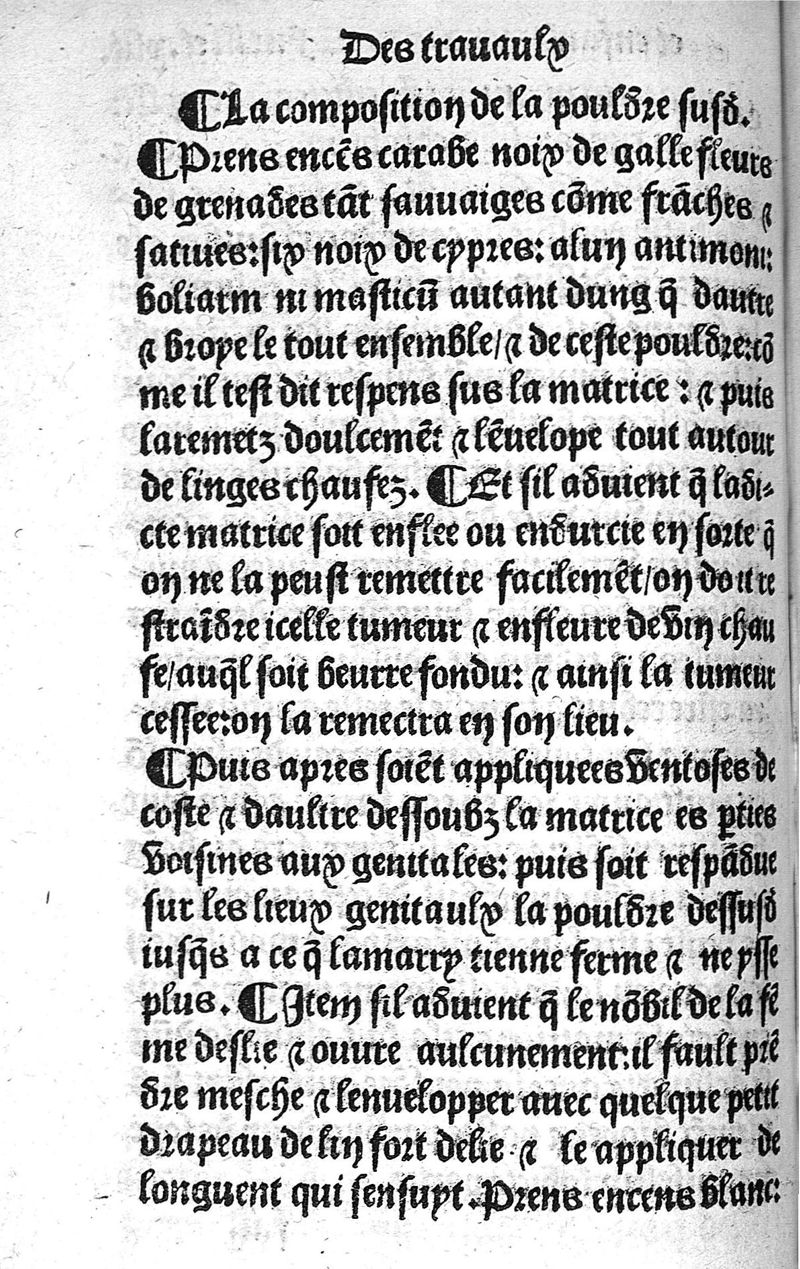 Des trauaulx
¶La composition de la pouldre susd̄.
¶Prens encẽs carabe noix de galle fleurs
de grenades tãt sauuaiges cõme frãches ⁊
satiues: six noix de cypres: aluy antimoni:
boliarm ni masticũ autant dung q̃ dautre
⁊ broye le tout ensemble/⁊ de ceste pouldre: cõ
me il test dit respens sus la matrice: ⁊ puis
laremetz doulcemẽt ⁊ lẽuelope tout autour
de linges chaufez. ¶Et sil aduient q̃ ladi⸗
cte matrice soit enflee ou endurcie en sorte q̃
on ne la peust remettre facilemẽt/on doit re
straĩdre icelle tumeur ⁊ enfleure de vin chau
fe/auq̃l soit beurre fondu: ⁊ ainsi la tumeur
cessee: on la remectra en son lieu.
¶Puis apres soiẽt appliquees ventoses de
coste ⁊ daultre dessoubz la matrice es ꝑties
voisines aux genitales: puis soit respãdue
sur les lieux genitaulx la pouldre dessusd̄
iusq̃s a ce q̃ lamarry tienne ferme ⁊ ne ysse
plus. ¶Item sil aduient q̃ le nõbil de la fẽ
me deslie ⁊ ouure aulcunement: il fault prẽ
dre mesche ⁊ lenuelopper auec quelque petit
drapeau de lin fort delie ⁊ le appliquer de
longuent qui sensuyt. Prens encens blanc: